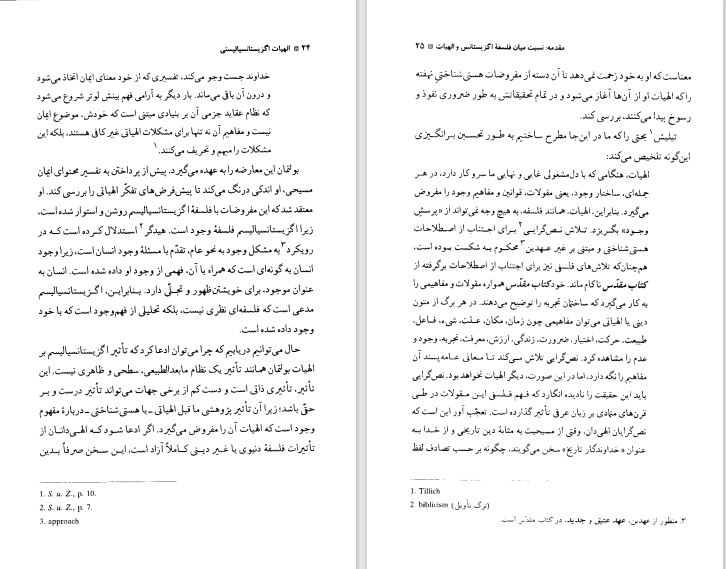 ۲۴ ■ الهیات اگزیستانسیالیستی
خداوند جست وجو می‌کند، تفسیری که از خود معنای ایمان اتخاذ می‌شود
و درون آن باقی می‌ماند. بار دیگر به آرامی فهم بینش لوتر شروع می‌شود
که نظام عقاید جزمی آن بر بنیادی مبتنی است که خودش، موضوع ایمان
نیست و مفاهیم آن نه تنها برای مشکلات الهیاتی غیر کافی هستند، بلکه این
مشکلات را مبهم و تحریف می‌کنند.۱
بولتمان این معارضه را به عهده می‌گیرد. پیش از پرداختن به تفسیر محتوای ایمان
مسیحی، او اندکی درنگ می‌کند تا پیش‌فرض‌های تفکّر الهیاتی را بررسی کند. او
معتقد شد که این مفروضات با فلسفهٔ اگزیستانسیالیسم روشن و استوار شده است،
زیرا اگزیستانسیالیسم فلسفهٔ وجود است. هیدگر۲ استدلال کرده است که در
رویکرد۳ به مشکل وجود به نحو عام، تقدّم با مسئلهٔ وجود انسان است، زیرا وجود
انسان به گونه‌ای است که همراه با آن، فهمی از وجود او داده شده است. انسان به
عنوان موجود، برای خویشتن ظهور و تجلّی دارد. بنابراین، اگزیستانسیالیسم
مدعی است که فلسفه‌ای نظری نیست، بلکه تحلیلی از فهم وجود است که با خود
وجود داده شده است.
حال می‌توانیم دریابیم که چرا می‌توان ادعا کرد که تأثیر اگزیستانسیالیسم بر
الهیات بولتمان همانند تأثیر یک نظام مابعدالطبیعی، سطحی و ظاهری نیست. این
تأثیر، تأثیری ذاتی است و دست کم از برخی جهات می‌تواند تأثیر درست و بر
حقّی باشد؛ زیرا آن تأثیر پژوهشی ما قبل الهیاتی ـ یا هستی‌شناختی ـ دربارهٔ مفهوم
وجود است که الهیات آن را مفروض می‌گیرد. اگر ادعا شود که الهی‌دانان از
تأثیرات فلسفهٔ دنیوی یا غیر دینی کاملاً آزاد است، این سخن صرفاً بدین
1. S. u. Z., p. 10.
2. S. u. Z., p. 7.
3. approach
مقدمه: نسبت میان فلسفهٔ اگزیستانس و الهیات ■ ۲۵
معناست که او به خود زحمت نمی‌دهد تا آن دسته از مفروضات هستی‌شناختیِ نهفته
را که الهیات او از آن‌ها آغاز می‌شود و در تمام تحقیقاتش به طور ضروری نفوذ و
رسوخ پیدا می‌کنند، بررسی کند.
تیلیش۱ بحثی را که ما در این‌جا مطرح ساختیم به طور تحسین برانگیزی
این‌گونه تلخیص می‌کند:
الهیات، هنگامی که با دل‌مشغولی غایی و نهایی ما سر و کار دارد، در هر
جمله‌ای، ساختار وجود، یعنی مقولات، قوانین و مفاهیم وجود را مفروض
می‌گیرد. بنابراین، الهیات، همانند فلسفه، به هیچ وجه نمی‌تواند از «پرسش
وجود» بگریزد. تلاش نص‌گرایی۲ برای اجتناب از اصطلاحات
هستی‌شناختی و مبتنی بر غیر عهدین۳ محکوم به شکست بوده است،
هم‌چنان‌که تلاش‌های فلسفی نیز برای اجتناب از اصطلاحات برگرفته از
کتاب مقدّس ناکام ماند. خود کتاب مقدّس همواره مقولات و مفاهیمی را
به کار می‌گیرد که ساختمان تجربه را توضیح می‌دهند. در هر برگ از متون
دینی یا الهیاتی می‌توان مفاهیمی چون زمان، مکان، علت، شیء، فاعل،
طبیعت، حرکت، اختیار، ضرورت، زندگی، ارزش، معرفت، تجربه، وجود و
عدم را مشاهده کرد. نص‌گرایی تلاش می‌کند تا معانی عامه‌پسند آن
مفاهیم را نگه دارد، اما در این صورت، دیگر الهیات نخواهد بود. نص‌گرایی
باید این حقیقت را نادیده انگارد که فهم فلسفی این مقولات در طی
قرن‌های متمادی بر زبان عرفی تأثیر گذارده است. تعجّب آور این است که
نص‌گرایان الهی‌دان، وقتی از مسیحیت به مثابهٔ دین تاریخی و از خدا به
عنوان «خداوندگار تاریخ» سخن می‌گویند، چگونه بر حسب تصادف لفظ
1. Tillich
2. biblicism (ترک تأویل)
۳. منظور از عهدین، عهد عتیق و جدید، در کتاب مقدّس است.